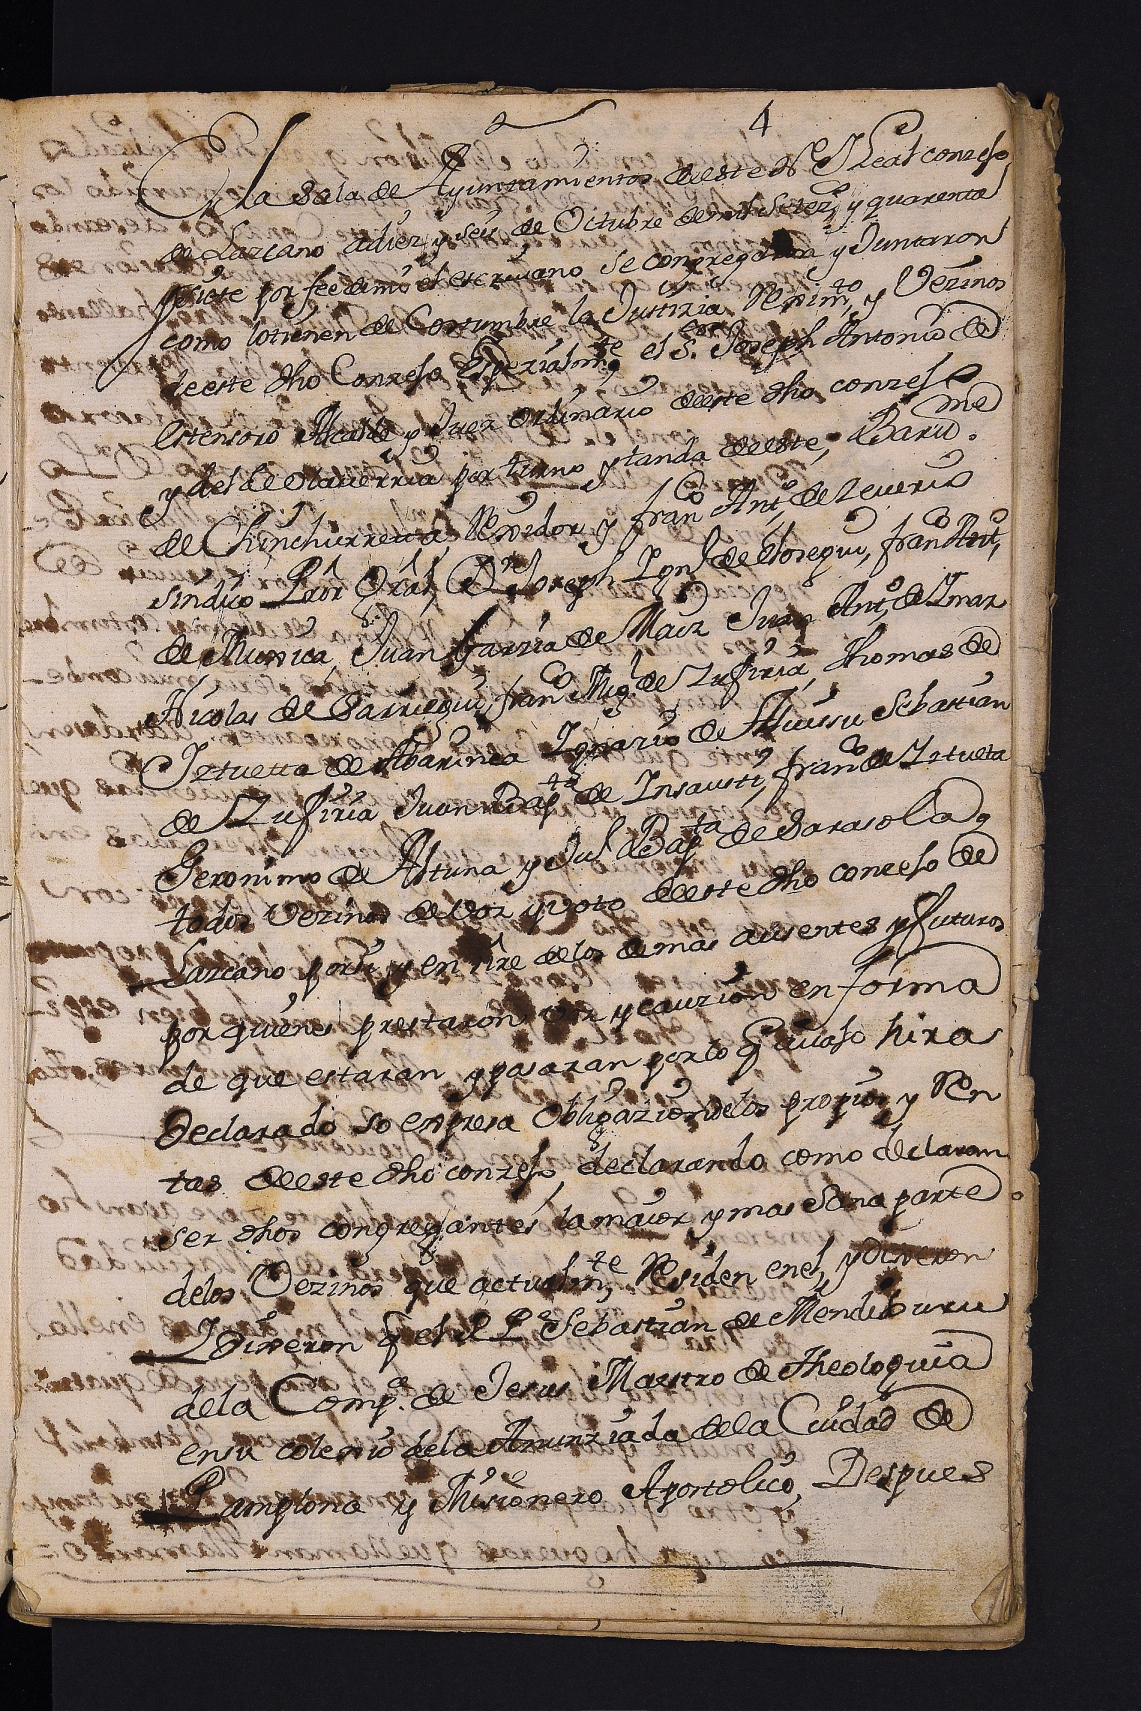 4
En la Sala de Ayuntamientos de este N.e y Leal conzejo
de Lazcano a diez y seis de Octubre de mil setez.s y quarenta
y siete por fee de mi el escrivano se congregaron y Juntaron
como lo tienen de Costumbre la Justizia Rejim.to y Vezinos
de este dho Conzejo Espezialm.te el S.or Joseph Antonio de
Lazcano Alcalde y Juez ordinario de este dho conzejo
y del de Olaverria por turno y tanda de este, Baru.me
de Chinchurreta Rejidor y fran.co Ant.o de
sindico Pror Gral, D.n Joseph Ign.o de Elosegui, fran.co Ant.o
de Munica, Juan Garzia de Maiz Juan Ant.o de Imaz
Nicolas de Barriegui, fran.co Mig.l de Zufiria, Thomas de
Iztuetta de Abarinea Ignazio de Sebastian
de Zufiria Juan Bap.ta de Insausti, fran.co de Iztueta
Geronimo de Altuna y Ju.n Bap.ta de Sarasola
todos Vezinos de Voz y Voto de este dho conzejo de
Lazcano por si y en nre de los demas ausentes y futuros
por quienes prestaron voz y cauzion en forma
de que estaran y pasaran por lo q avajo hira
Declarado so expresa Obligazion de los propios y Ren
tas de este dho conzejo, declarando como declaran
ser dhos congregantes la maior y mas Sana parte
de los Vezinos que actualm.te Residen en el, y dixeron
Dixeron q el R. P.e Sebastian de Mendiburu
de la Comp.a de Jesus Maestro de Theologuia
en su colexio de la Anunziada de la Ciudad de
Pamplona y Misionero Apostolico, Despues